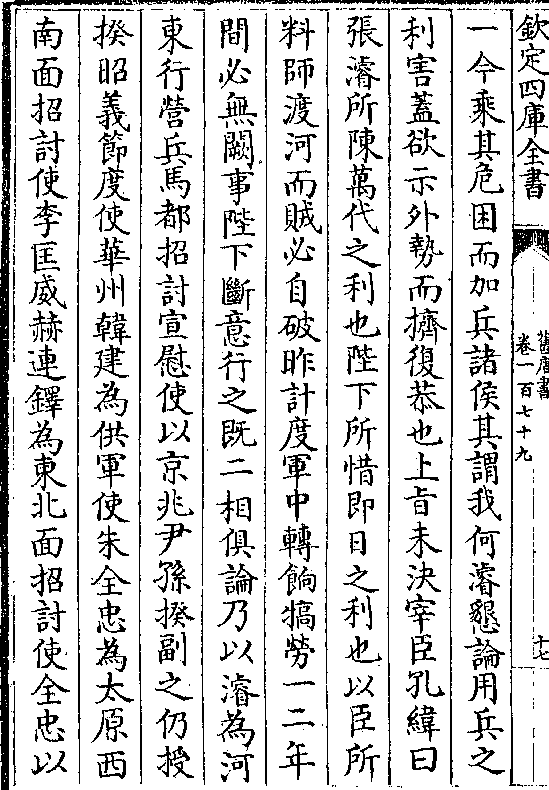 欽定四庫全書
舊唐書
卷一百七十九
十七
一今乘其危困而加兵諸侯其謂我何濬懇論用兵之
利害蓋欲示外勢而擠復恭也上旨未決宰臣孔緯曰
張濬所陳萬代之利也陛下所惜即日之利也以臣所
料師渡河而賊必自破昨計度軍中轉餉犒勞一二年
間必無闕事陛下斷意行之既二相俱論乃以濬為河
東行營兵馬都招討宣慰使以京兆尹孫揆副之仍授
揆昭義節度使華州韓建為供軍使朱全忠為太原西
南面招討使李匡威赫連鐸為東北面招討使全忠以